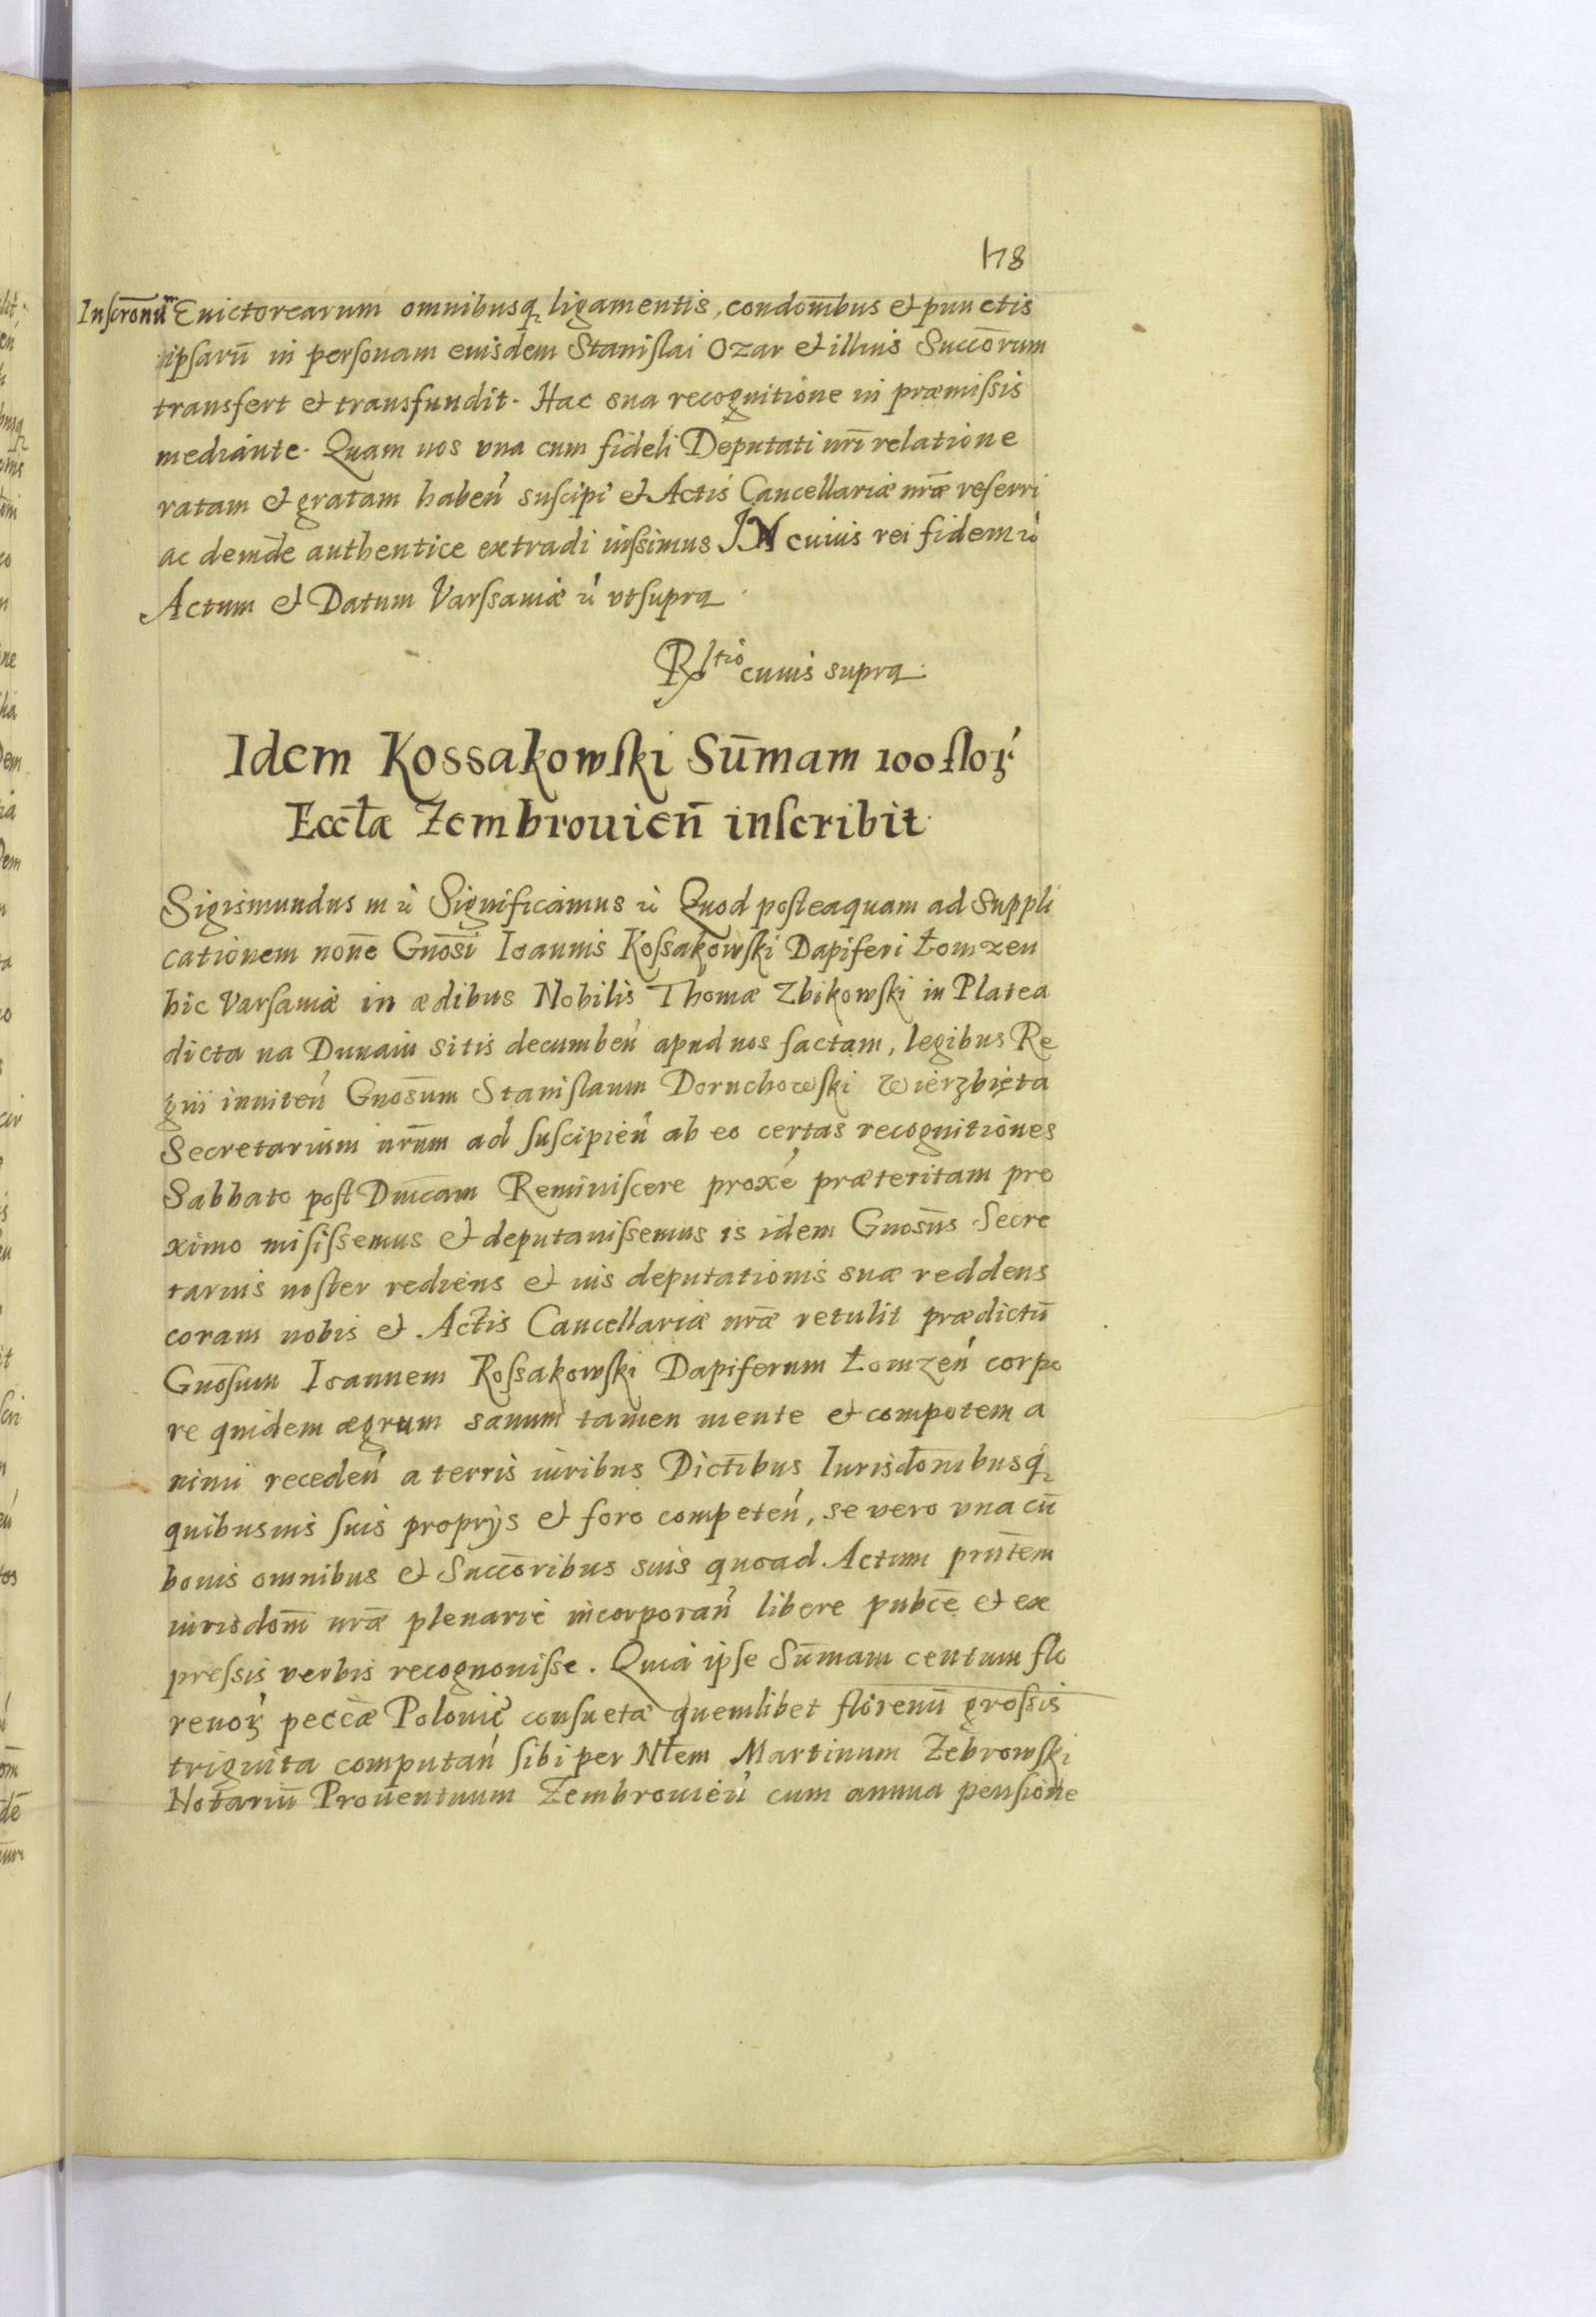 478
Inscr̄onū Euictorearum omnibusq̨ ligamentis, condom̄bus et punctis
ipsarū in personam eiusdem Stanislai Ozar et illius Succ̄orum
transfert et transfundit. Hac sua recognitione in præmissis
mediante. Quam nos vna cum fideli Deputati nr̄i relatione
ratam et gratam haben̄ suscipi et Actis Cancellariæ nr̄æ referri
ac demde authentice extradi iussimus IN cuius rei fidem
Actum et Datum Varssauiæ vt supra
cuius supra
Idem Kossakowski Sūmam 100 flor̄
Eccł̄æ Zembrouien̄ inscribit
Sigismundus III Significamus Quod posteaquam ad Suppli
cationem non̄e Gn̄osi Ioannis Kossakowski Dapiferi Łomzen
hic Varsauiæ in ædibus Nobilis Thomæ Zbikowski in Platea
dicta na Dunaiu sitis decumben̄ apud nos factam, legibus Re
gni inniten̄ Gn̄osum Stanislaum Doruchowski Wierzbięta
Secretarium nr̄um ad suscipien̄ ab eo certas recognitiones
Sabbato post Dn̄icam Reminiscere proxe præteritam pro
ximo misissemus et deputauissemus is idem Gnosūs Secre
tarius noster rediens et uis deputationis suæ reddens
coram nobis et Actis Cancellariæ nr̄æ retulit prædictū
Gn̄osum Ioannem Kossakowski Dapiferum Łomzen̄ corpo
re quidem ægrum sanum tamen mente et compotem a
nimi receden̄ a terris iuribus Dict̄ibus Iurisdom̄busq̨
quibusuis suis proprijs et foro competen̄, se vero vna cū
bonis omnibus et Succ̄oribus suis quoad Actum prn̄tem
iurisdom̄ nr̄æ plenarie incorporan̄ libere pubc̄e et ex
pressis verbis recognouisse. Quia ipse Sūmam centum flo
renor̄ pecc̄æ Polonic̄ consuetæ quemlibet florenū grossis
triginta computan̄ sibi per Nł̄em Martinum Zebrowski
Notariū Prouentuum Zembrouien̄ cum annua pensione